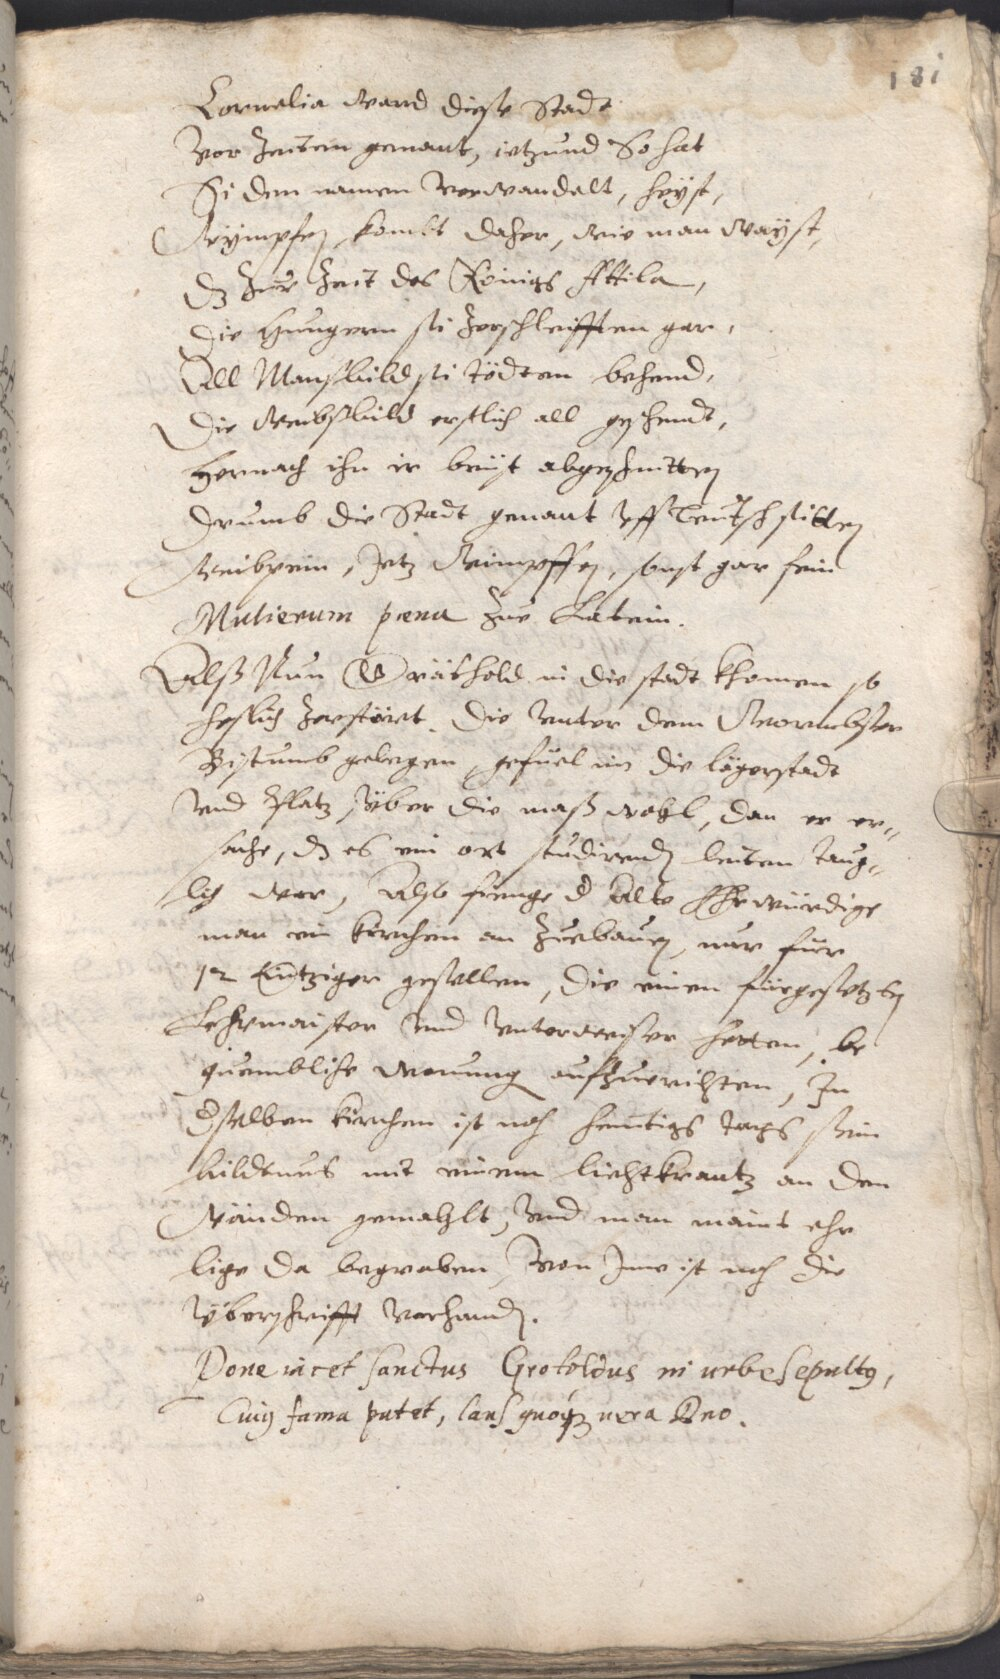 181
Cornelia ward diese Stadt
Vor Zeiten genant, ietzund So hat
Si den namen verwandelt, heyst,
Wympfen, kombt daher, wie man wayst,
Dz zur Zeit des Königs Attila,
Die Hungern sie zerschleifften gar,
All Mansbild sie tödten behend,
Die Weibsbild erstlich all geschendt,
Hernach ihn ir brüst abgeschnitten
Drumb die Stadt genant vff Teutsch sitten
Weibpein, Jetz Wimpffen, sonst gar fein
Mulierum poena zur Latein.
Alß Nun Cratholdt in die stadt khomen so
heslich zerstört, die vnter dem Wormbser
Bistumb gelegen, gefiel im die lägerstadt
vnd Platz vber die maß wohl, dan er er-
sahe, dz es ein ort studirenden leuten taug-
lich wer, Also fienge d alte Ehrwürdige
man ein kirchen an zuebauen, nur für
12 Eintziger gesellen, die einen fürgesetzten
Lehrmaister vnd vnterweiser hetten, be
quembliche wonung aufzuerichten, In
dselben kirchen ist noch heuttigs tags sein
bildtnus mit einem liechtkrantz an den
Wänden gemahlt, vnd man maint ehr
lige da begraben, Von Ime ist noch die
vberschrifft vorhanden.
Pone iacet sanctus Grotoldus in urbe sepultus,
Cuius fama patet, laus quoque vera Deo.